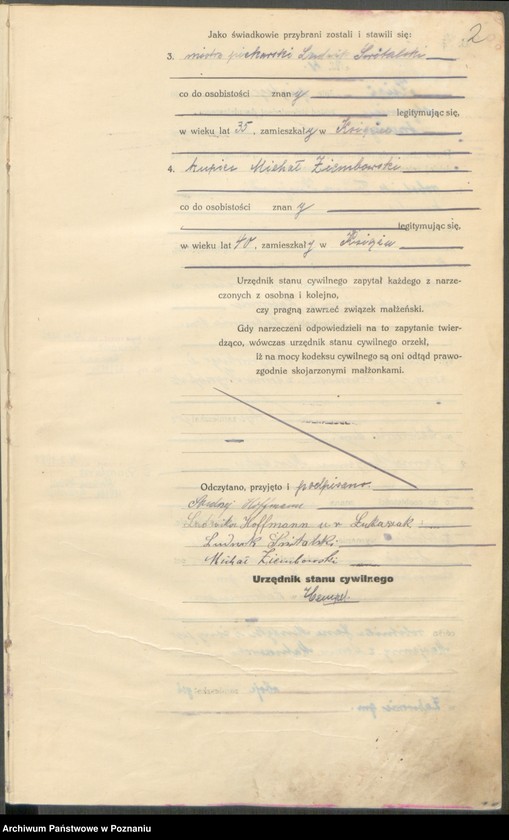 2
Jako świadkowie przybrani zostali i stawili się:
3. mistrz piekarski Ludwik
co do osobistości znany
legitymując się,
w wieku lat 35, zamieszkały w Książu
4. kupiec Michał Ziembowski
co do osobistości znany
legitymując się,
w wieku lat 40, zamieszkały w Książu
Urzędnik stanu cywilnego zapytał każdego z narze-
czonych z osobna i kolejno,
czy pragną zawrzeć związek małżeński.
Gdy narzeczeni odpowiedzieli na to zapytanie twier-
dząco, wówczas urzędnik stanu cywilnego orzekł,
iż na mocy kodeksu cywilnego są oni odtąd prawo-
zgodnie skojarzonymi małżonkami.
Odczytano, przyjęto i podpisano.
Hoffmann
Hoffmann ur Łukaszak
Ludwik
Michał Ziembowski
Urzędnik stanu cywilnego
Archiwum Państwowe w Poznaniu